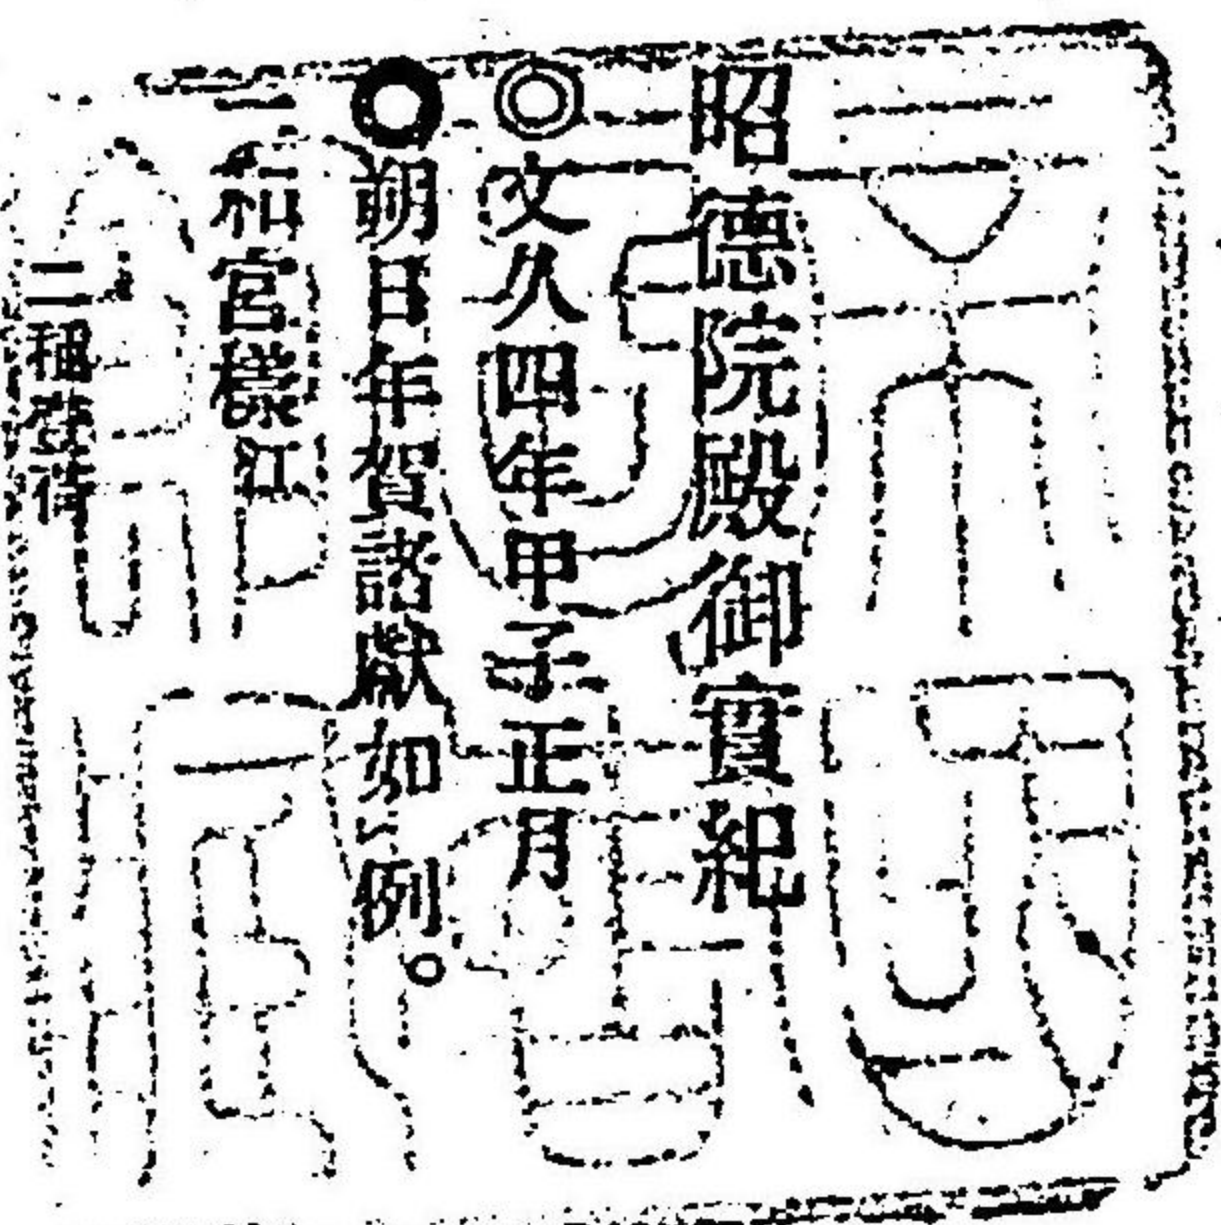 昭德院殿御實紀
◎文久四年甲子正月
●朔日年賀諸獻如㆑例。
一和宮樣江
二種壹荷